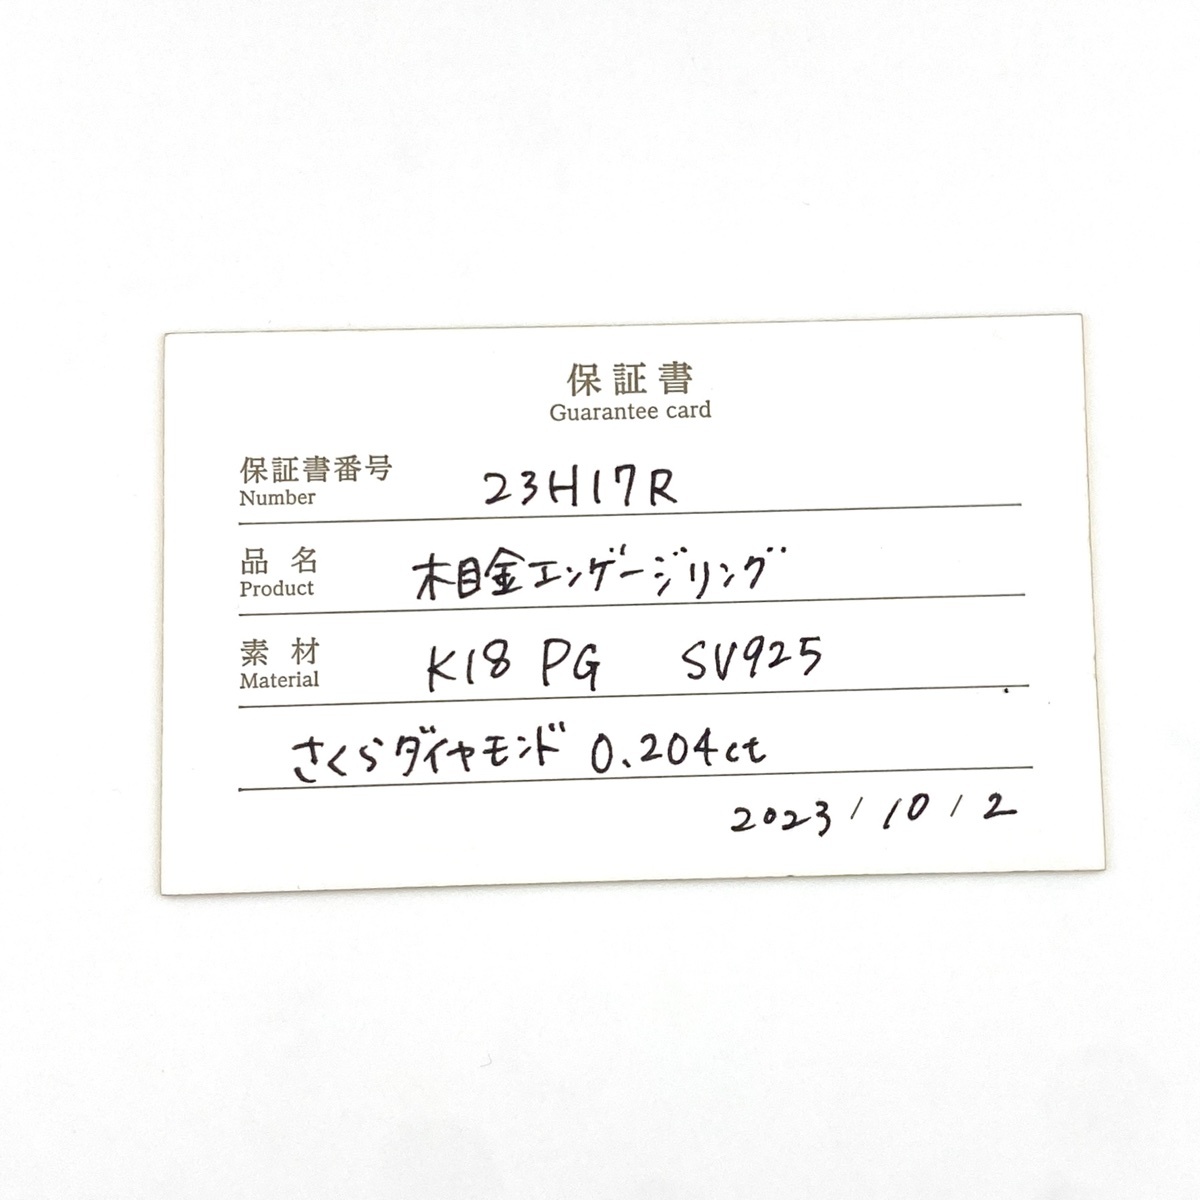 保証書
Guarantee card
保証書番号 23H17R
Number
品名 木目金エンゲージリング
Product
素材 K18 PG SV925
Material
さくらダイヤモンド 0.204ct
2023/10/2